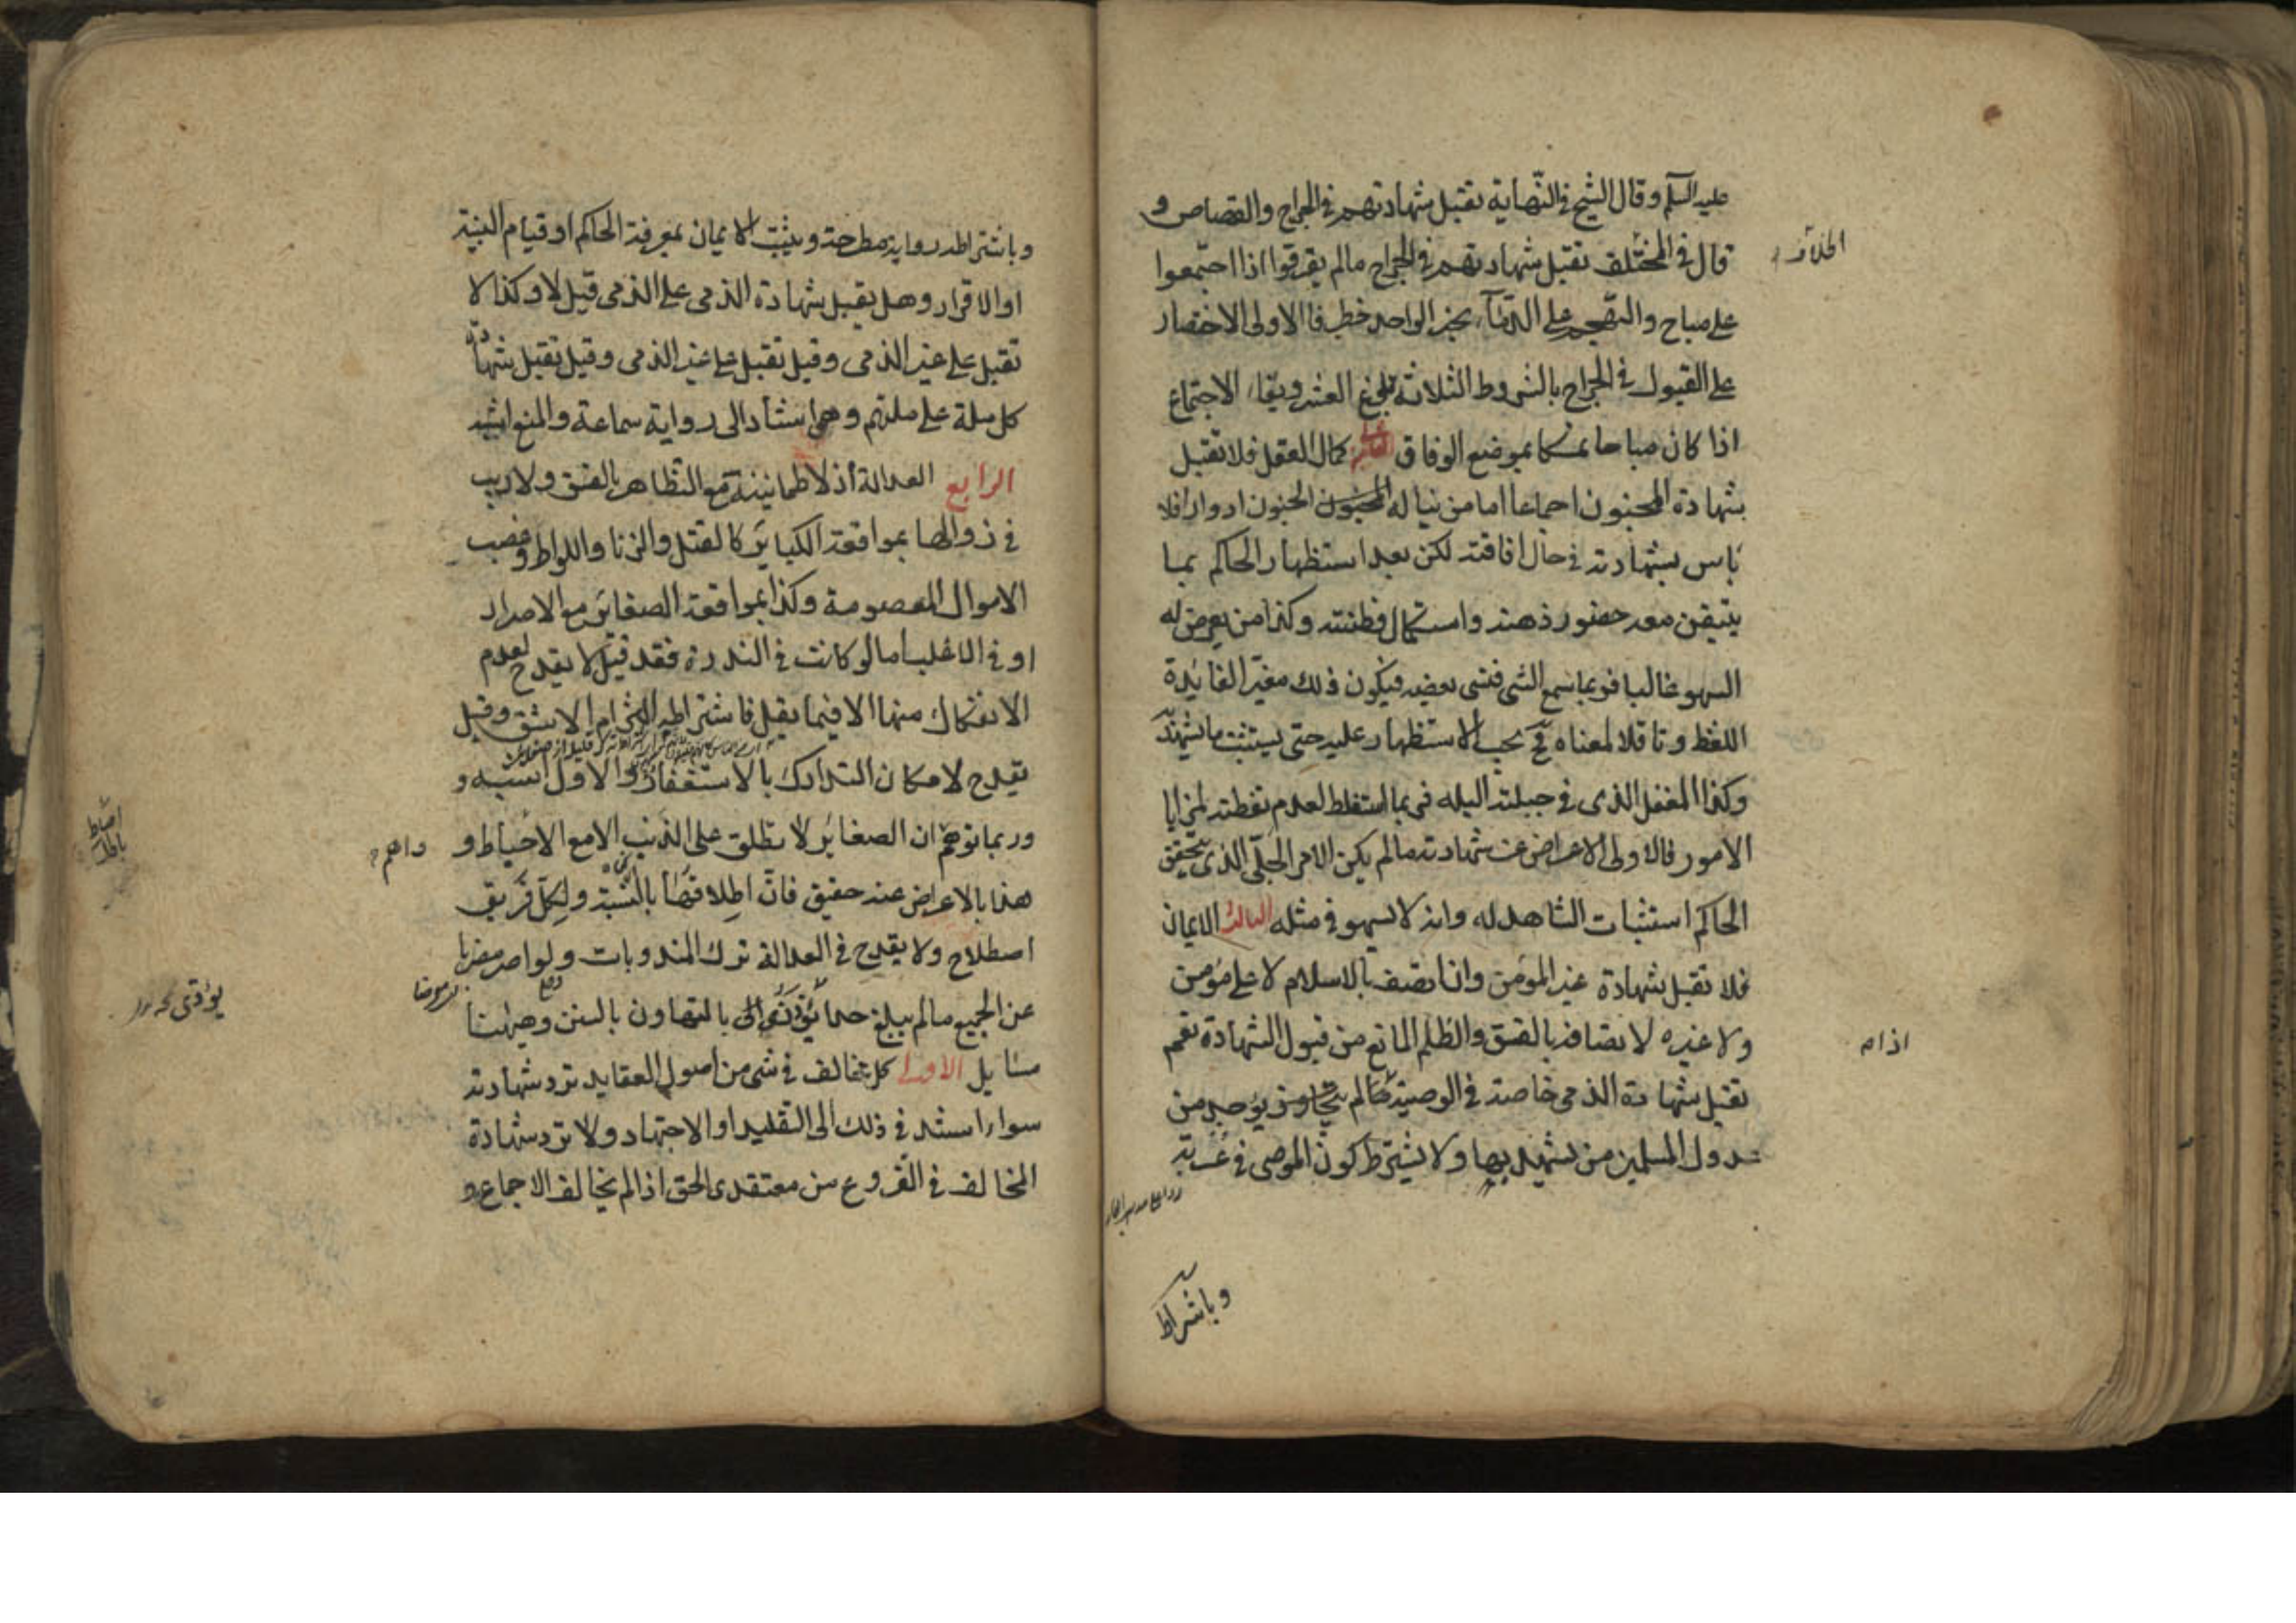 عليه السلم وقال الشيخ في النهاية تقبل شهادتهم في الجراح والقصاص و
قال في الخلاف تقبل شهادتهم في الجراح مالم يفرقوا اذا اجتمعوا
على مباح والتهجم على الدماء بخبر الواحد خطر فالاولى الاختصار
على القبول في الجراح بالشروط الثلاثة بلوغ العشر وبقاء الاجتماع
اذا كان مباحا تمسكا بموضع الوفاق كمال العقل فلا تقبل
شهادة المجنون اجماعا اما من يناله الجنون ادوارا فلا
باس بشهادته في حال افاقته لكن بعد استظهار الحاكم بما
يتيقن معه حضور ذهنه واستكمال فطنته وكذا من يعرض له
السهو غالبا فربما سمع الشى فنسى بعضه فيكون ذلك مغيرا لفايدة
اللفظ وناقلا لمعناه فح يجب الاستظهار عليه حتى يستثبت ما يشهد به
وكذا المغفل الذى في جبلته البله فربما استغلط لعدم تفطنه لمزايا
الامور فالاولى الاعراض عن شهادته مالم يكن الامر الجلى الذى يتحقق
الحاكم استثبات الشاهد له وانه لا يسهو في مثله الثالث الايمان
فلا تقبل شهادة غير المؤمن وان اتصف بالاسلام لا على مؤمن
ولا غيره لاتصافه بالفسق والظلم المانع من قبول الشهادة نعم
تقبل شهادة الذمى خاصة في الوصية
عدول المسلمين من يشهد بها ولا يشترط كون الموصى في غربة
وباشتراط
اذا م
وباشتراطه رواية مطرحة ويثبت الايمان بمعرفة الحاكم او قيام البينة
او الاقرار وهل يقبل شهادة الذمى على الذمى قيل لا وكذا لا
تقبل على غير الذمى وقيل تقبل على غير الذمى وقيل تقبل شهادة
كل ملة على ملتهم وهو استناد الى رواية سماعة والمنع اشبه
الرابع العدالة اذ لا طمانينة مع التظاهر بالفسق ولا ريب
في زوالها بمواقعة الكباير كالقتل والزنا واللواط وغصب
الاموال المعصومة وكذا بمواقعة الصغاير مع الاصرار
او في الاغلب اما لو كانت في الندرة فقد قيل لا يقدح لعدم
الانفكاك منها الا فيما يقل فاشتراطه التزام الاشق وقيل
يقدح لامكان التدارك بالاستغفار والاول اشبه و
وربما توهم ان الصغاير لا تطلق على الذنب الا مع الاحباط و
هذا بالاعراض عنه حقيق فان اطلاقها بالنسبة ولكل فريق
اصطلاح ولا يقدح في العدالة ترك المندوبات ولو اصر مضربا
عن الجميع مالم يبلغ حدا بالتهاون بالسنن وهيهنا
مسايل الاولى كل مخالف في شى من اصول العقايد ترد شهادته
سواء استند في ذلك الى التقليد او الاجتهاد ولا ترد شهادة
المخالف في الفروع من معتقدى الحق اذا لم يخالف الاجماع و